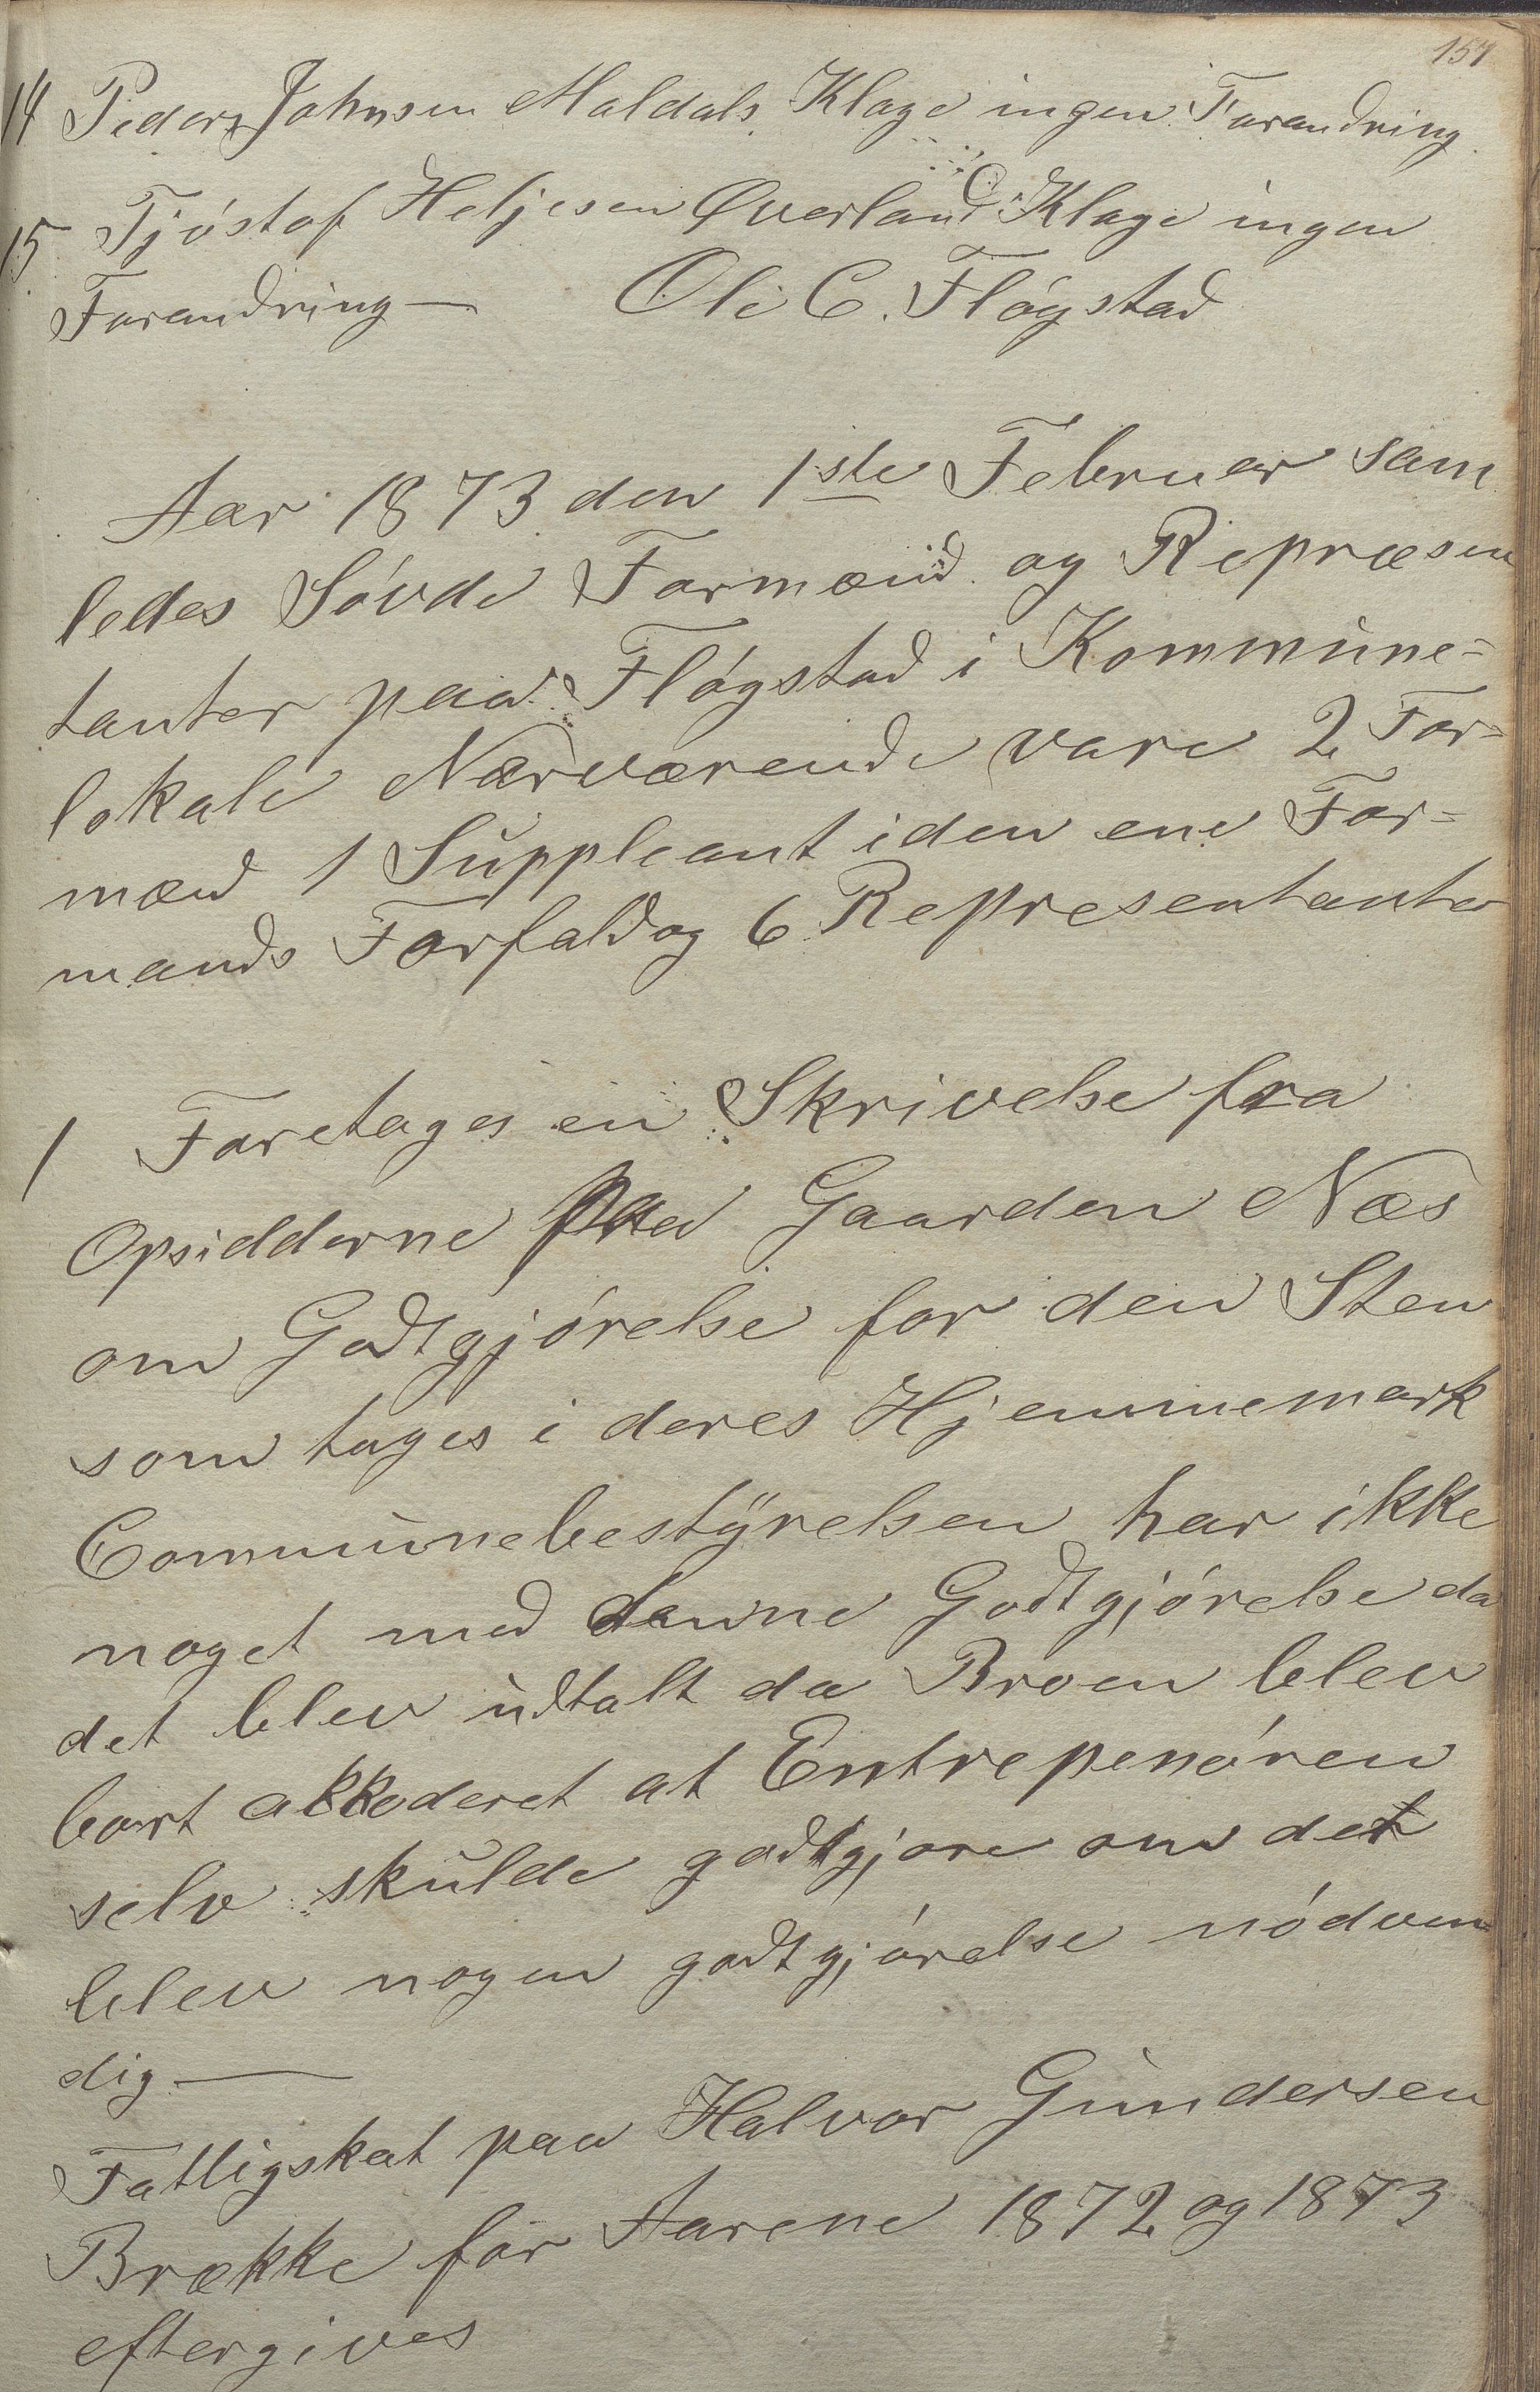 157
14 Peder Johnsen Maldals Klage ingen Forandring
15 Tjóstof Heljesen Øverland Klage ingen
Forandring — Ole C. Flógstad
Aar 1873 den 1ste Februar sam
ledes Sóvde Formænd og Repræsen
tanter paa Flógstad i Kommune=
lokale Nærværende vare 2 For=
mænd 1 Suppleant i den ene For=
mands Forfald og 6 Representanter
1 Foretages en Skrivelse fra
Opsidderne paa Gaarden Næs
om Godtgjórelse for den Sten
som tages i deres Hjemmemark
Communebestyrelsen har ikke
noget med denne Godtgjórelse da
det blev udtalt da Broen blev
bort akkoderet at Entrepenóren
selv skulde godtgjore om det
blev nogen godtgjórelse nódven=
dig —
Fattigskat paa Halvor Gundersen
Brække for Aarene 1872 og 1873
eftergives